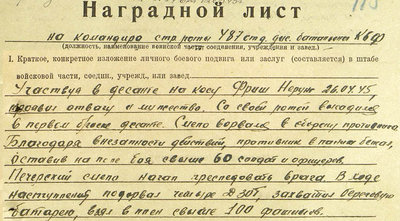 Наградной лист
на командира стр. роты 487 отд. дис. батальона КБФ
(должность, наименование воинской части соединения, учреждения и завед.)
I. Краткое, конкретное изложение личного боевого подвига или заслуг (составляется) в штабе
войсковой части, соедин., учрежд., или завед.
Участвуя в десанте на косу Фриш Нерунг 26.04.45
проявил отвагу и мужество. Со своей ротой высадился
в первом броске десанта. Смело ворвался в оборону противника.
Благодаря внезапности действий, противник в панике бежал,
оставив на поле боя свыше 60 солдат и офицеров.
Печерский смело начал преследовать врага. В ходе
наступления подорвал четыре ДЗОТ, захватил береговую
батарею, взял в плен свыше 100 фашистов.